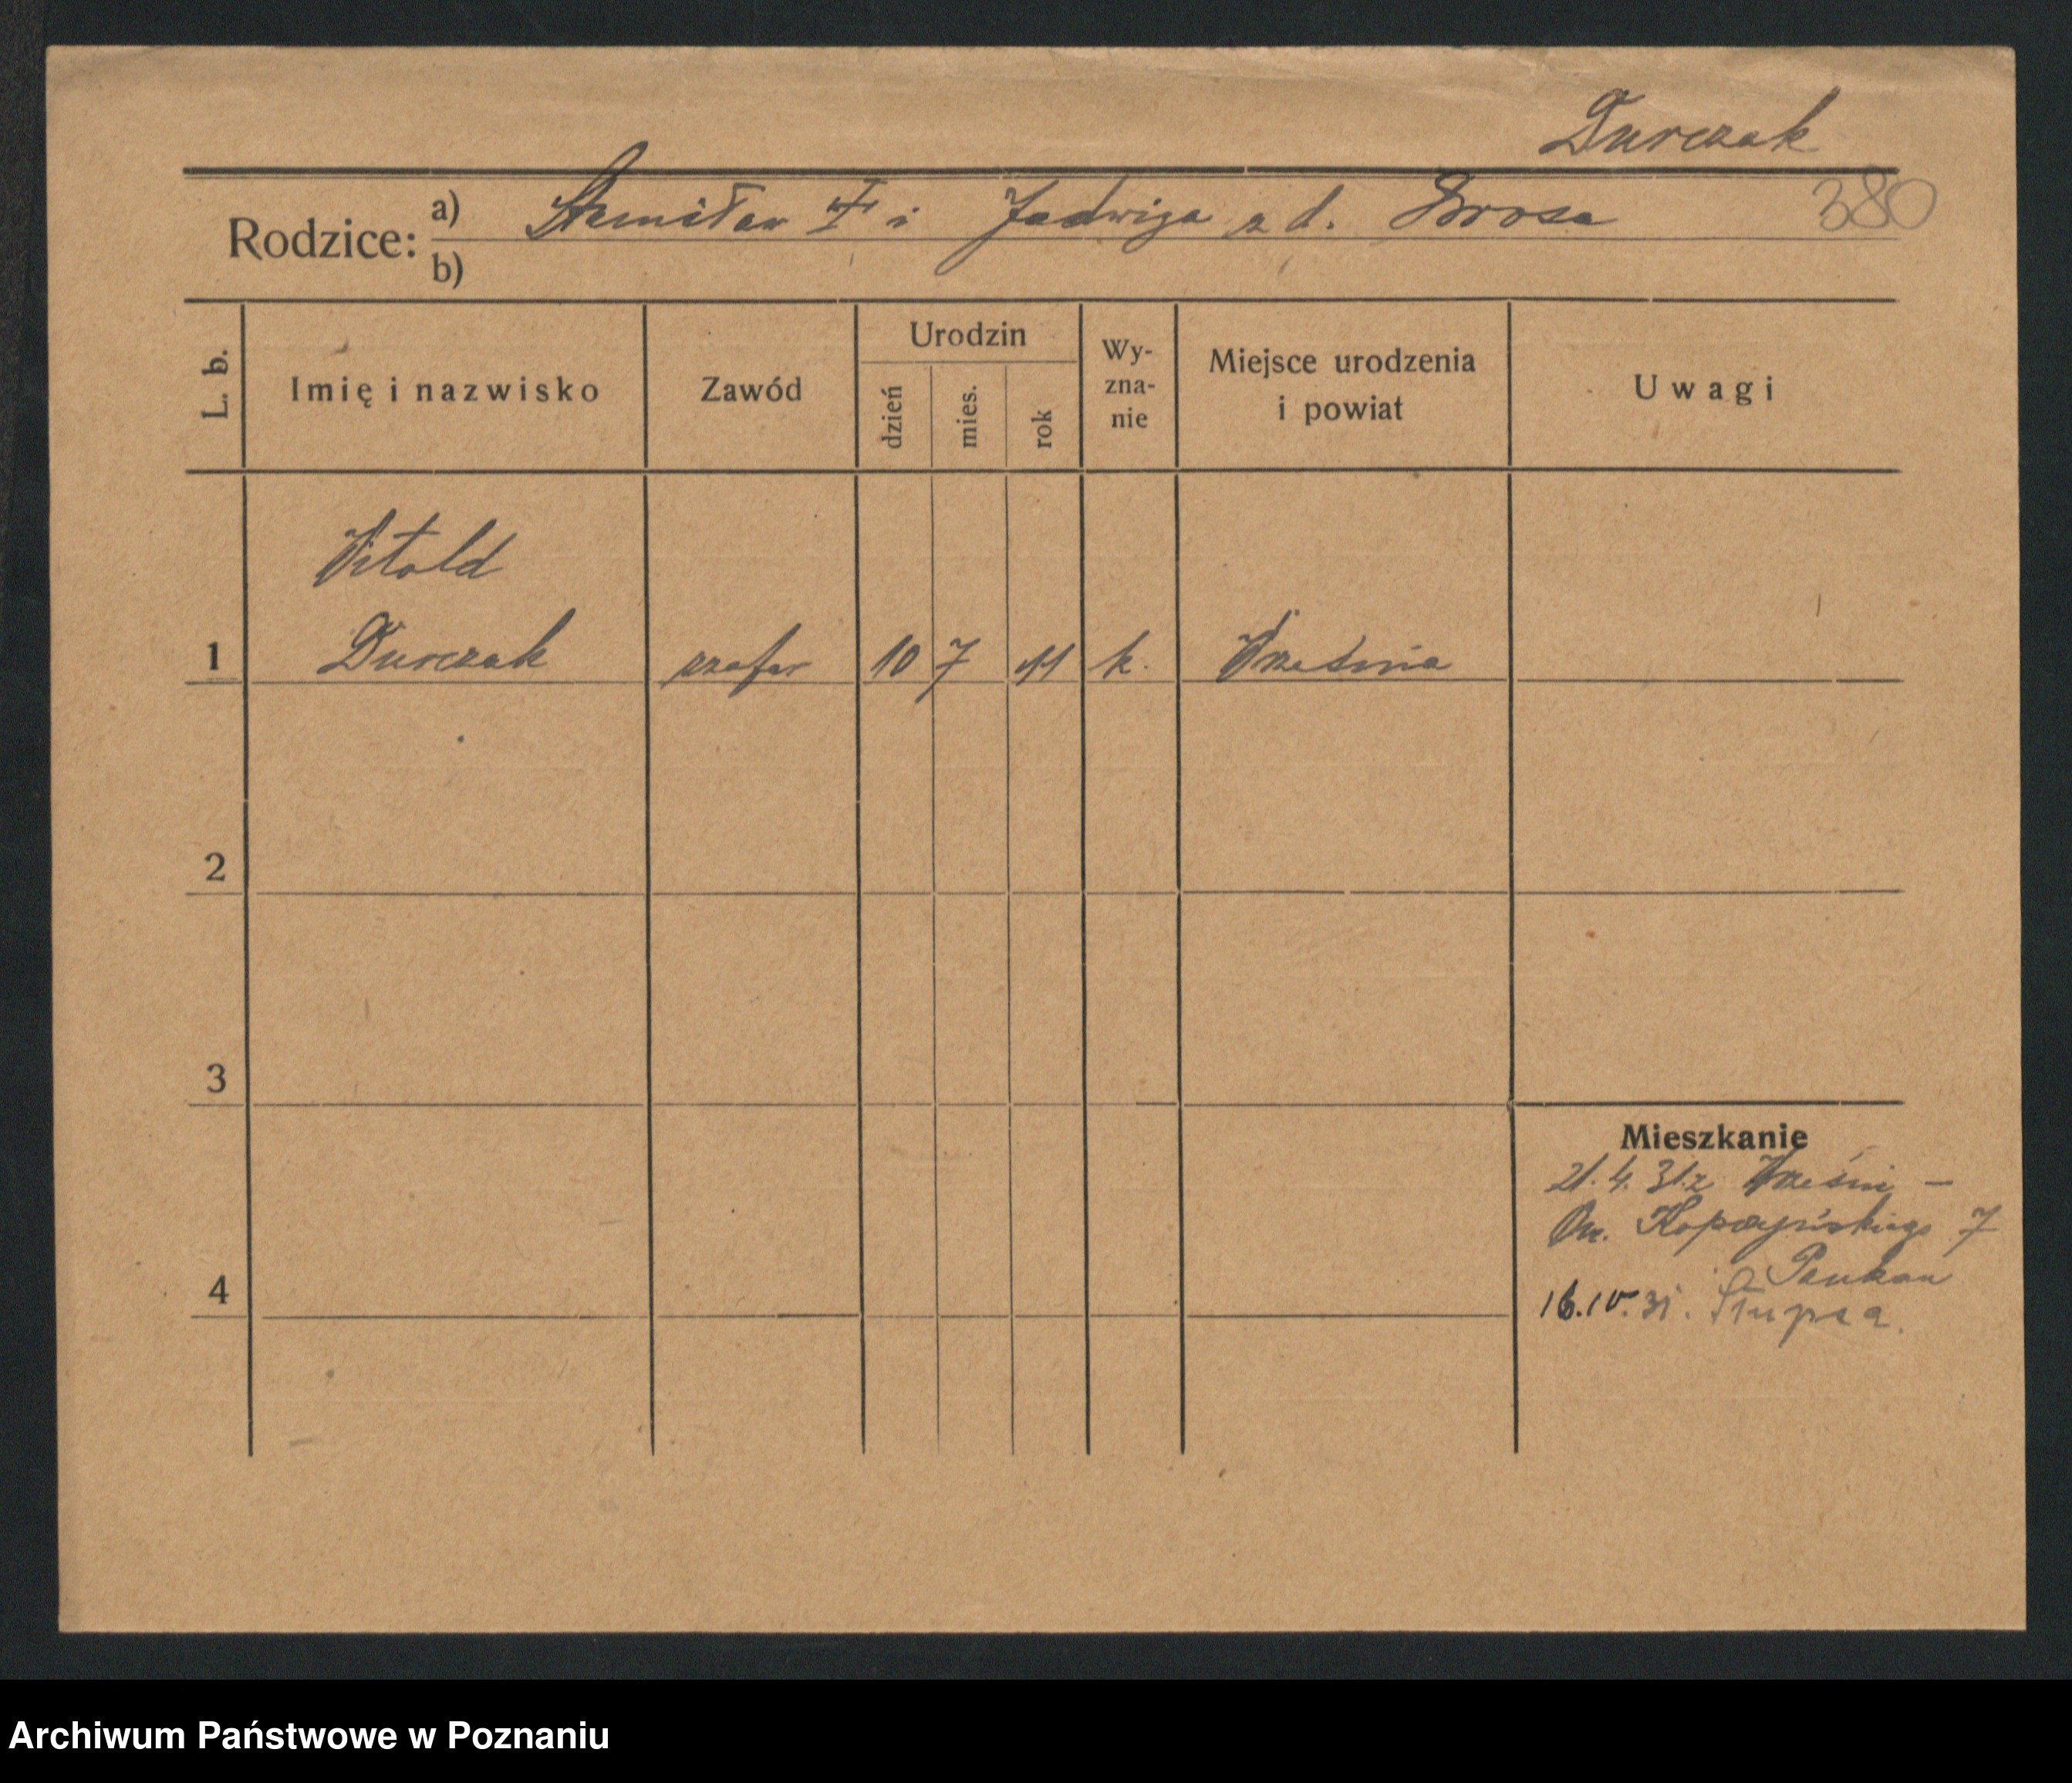 Durczak
380
Rodzice: a) Stanisław † i Jadwiga z d. Brosa
b)
L. b.
Imię i nazwisko
Zawód
Urodzin
dzień
mies.
rok
Wy-
zna-
nie
Miejsce urodzenia
i powiat
Uwagi
Witold
1 Durczak szofer 10 7 11 k. Września
2
3
4
Mieszkanie
21.4.31. z Wrześni –
Kopczyńskiego 7
16.IV.31. Słupca.
Archiwum Państwowe w Poznaniu